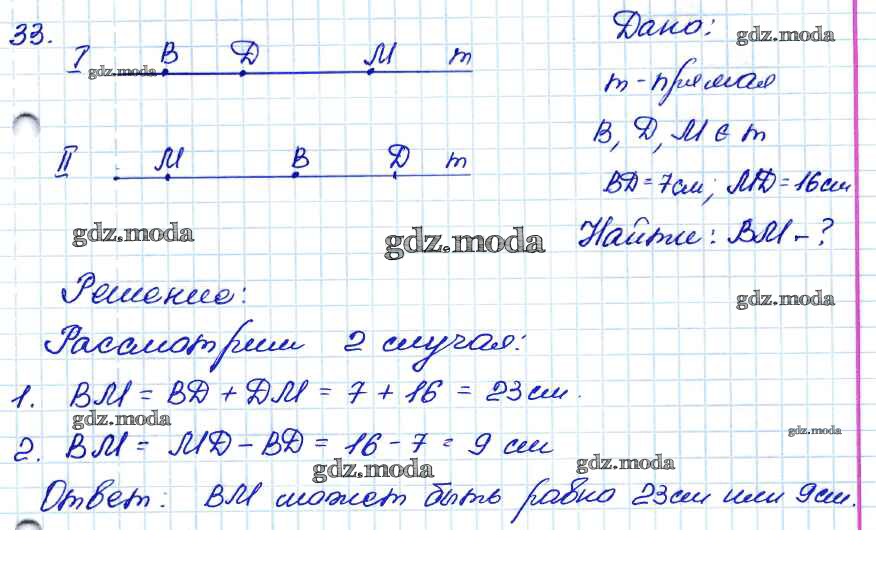 33.
I B D M m
II M B D m
Дано:
m - прямая
B, D, M ∈ m
BD = 7см; MD = 16см
Найти: BM - ?
gdz.moda
gdz.moda
gdz.moda
gdz.moda
gdz.moda
Решение:
Рассмотрим 2 случая:
1. BM = BD + DM = 7 + 16 = 23 см.
gdz.moda
gdz.moda
2. BM = MD - BD = 16 - 7 = 9 см
gdz.moda
gdz.moda
Ответ: BM может быть равно 23см или 9см.